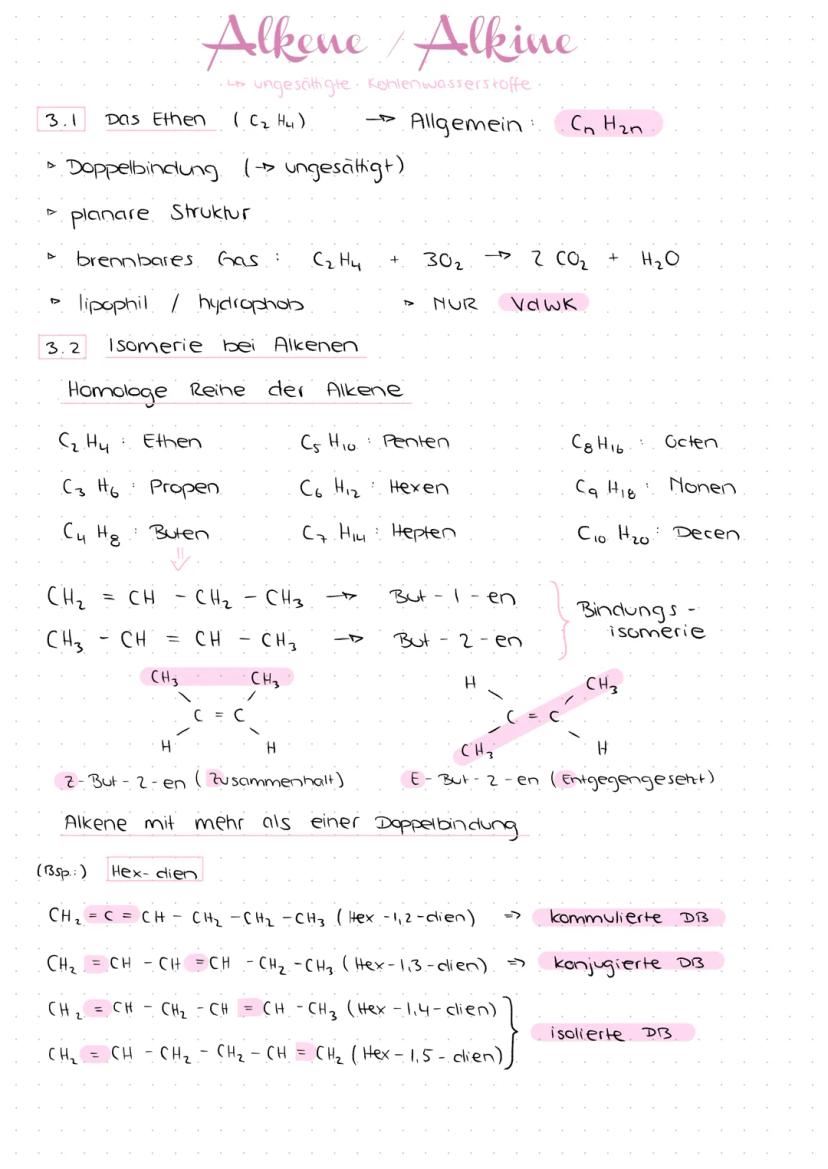 Alkene / Alkine
↳ ungesättigte Kohlenwasserstoffe
3.1 Das Ethen (C₂H₄) → Allgemein: CₙH₂ₙ
▹ Doppelbindung (→ ungesättigt)
▹ planare Struktur
▹ brennbares Gas: C₂H₄ + 3O₂ → 2 CO₂ + H₂O
▹ lipophil / hydrophob ▹ NUR VdWK
3.2 Isomerie bei Alkenen
Homologe Reihe der Alkene
C₂H₄: Ethen C₅H₁₀: Penten C₈H₁₆: Octen
C₃H₆: Propen C₆H₁₂: Hexen C₉H₁₈: Nonen
C₄H₈: Buten C₇H₁₄: Hepten C₁₀H₂₀: Decen
⇓
CH₂ = CH - CH₂ - CH₃ → But - 1 - en
CH₃ - CH = CH - CH₃ → But - 2 - en
} Bindungs-
isomerie
CH₃ CH₃ H CH₃
C = C C = C
H H CH₃ H
Z-But-2-en (Zusammenhalt) E-But-2-en (Entgegengesetzt)
Alkene mit mehr als einer Doppelbindung
(Bsp.:) Hex-dien
CH₂ = C = CH - CH₂ - CH₂ - CH₃ (Hex-1,2-dien) ⇒ kommulierte DB
CH₂ = CH - CH = CH - CH₂ - CH₃ (Hex-1,3-dien) ⇒ konjugierte DB
CH₂ = CH - CH₂ - CH = CH - CH₃ (Hex-1,4-dien)
CH₂ = CH - CH₂ - CH₂ - CH = CH₂ (Hex-1,5-dien)
} isolierte DB